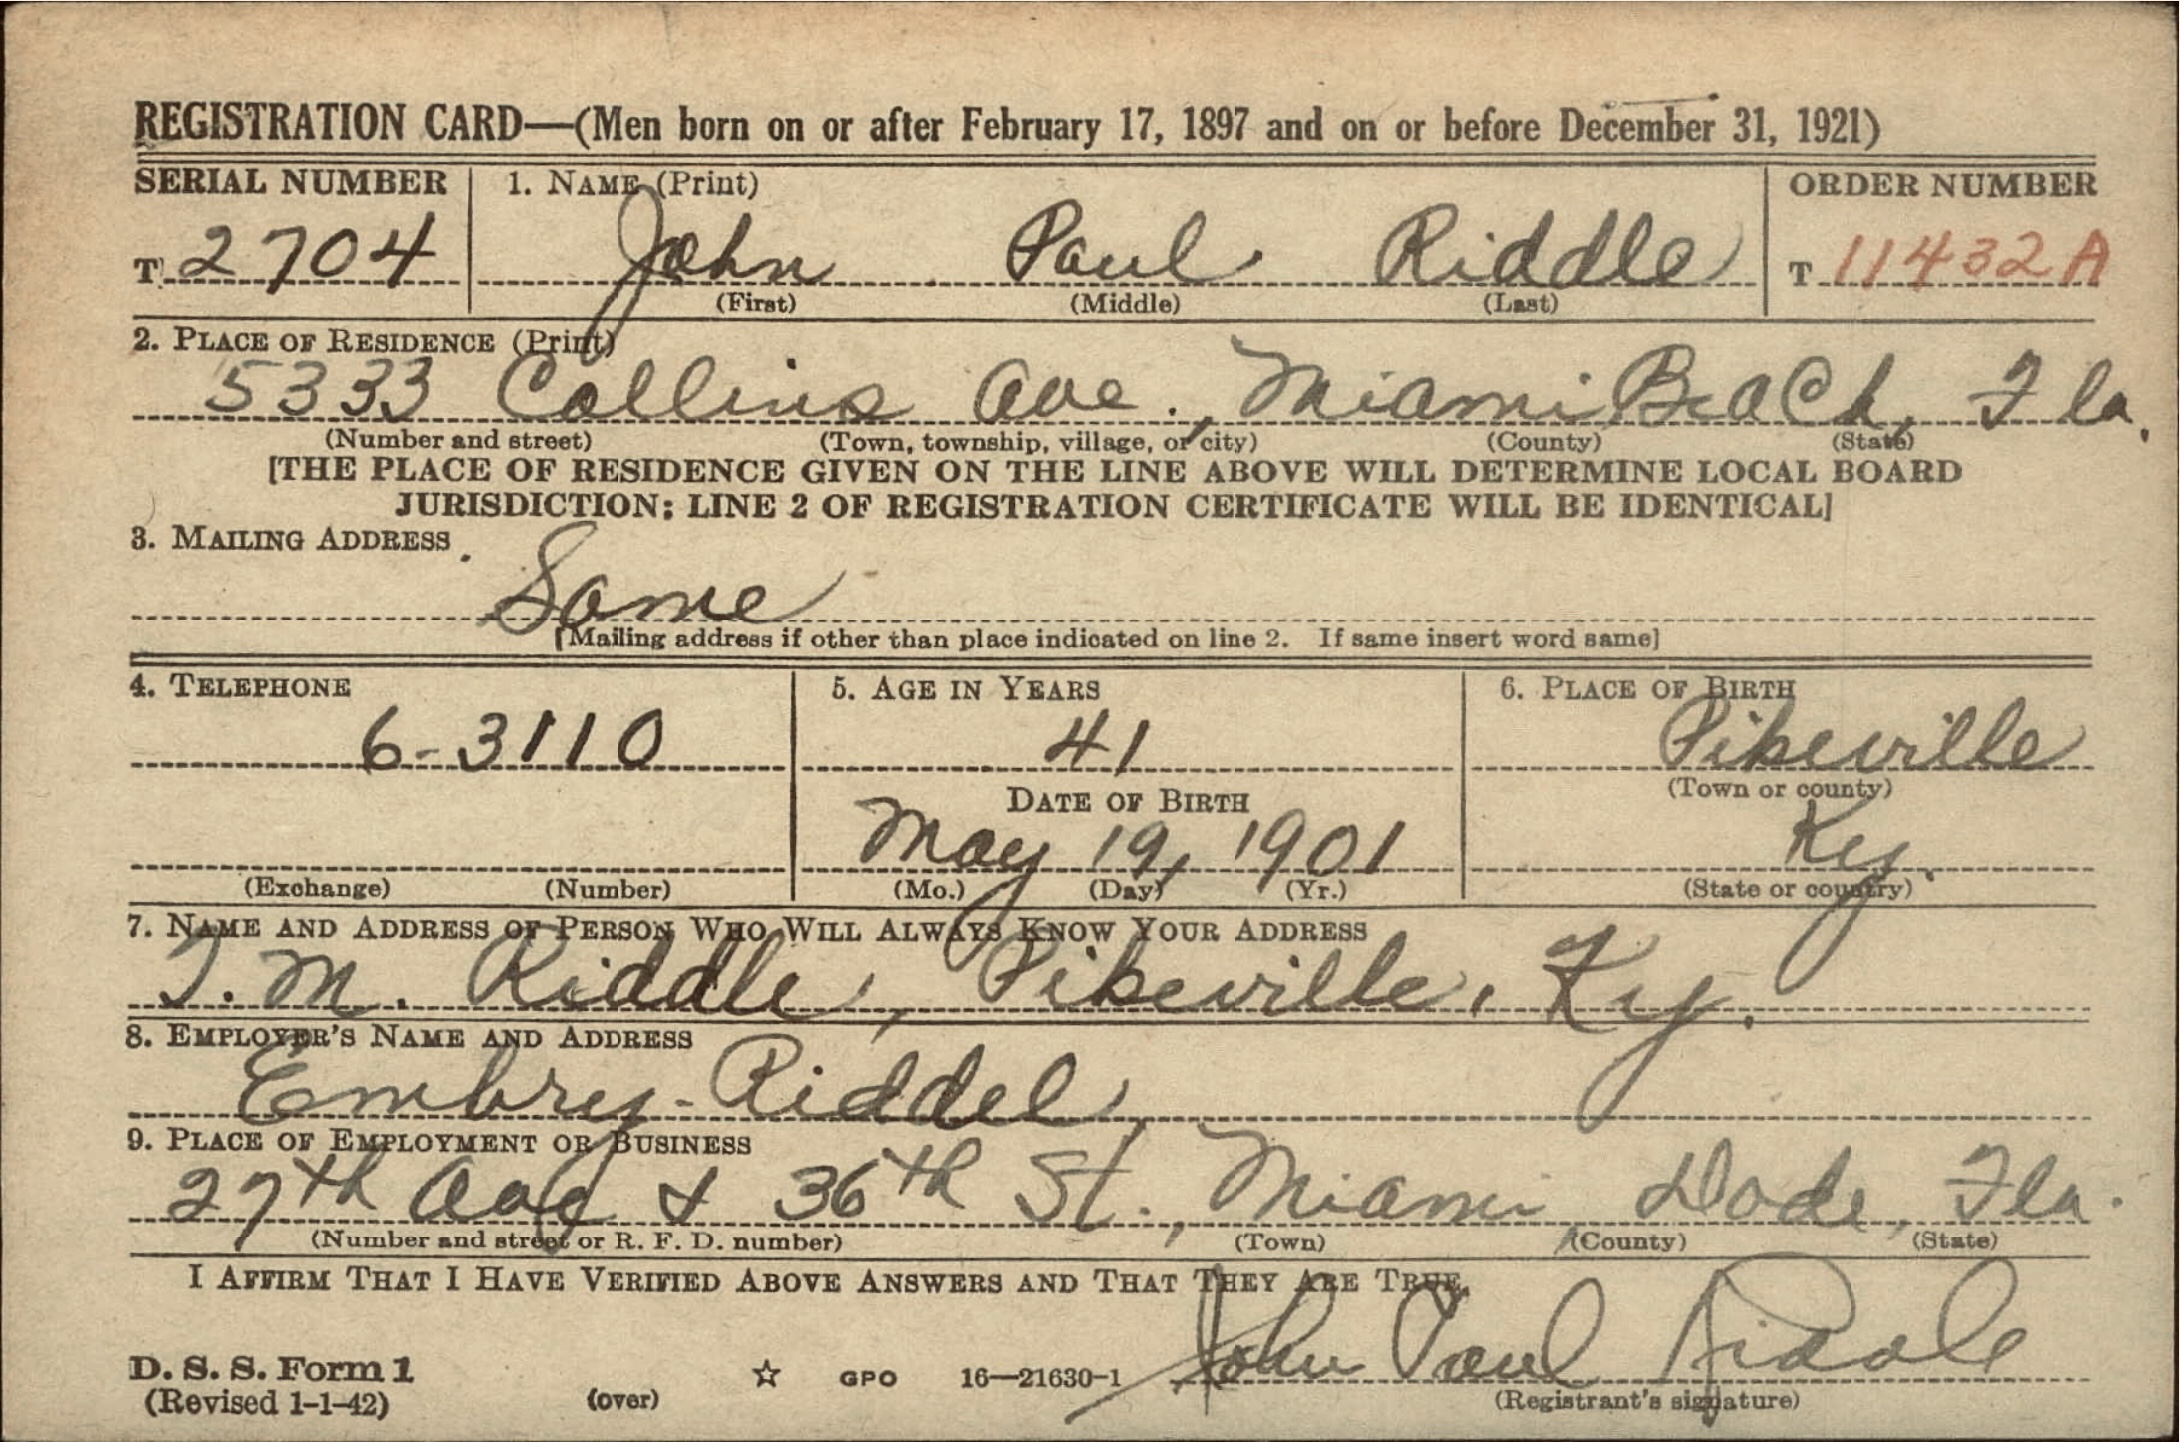 REGISTRATION CARD—(Men born on or after February 17, 1897 and on or before December 31, 1921)
SERIAL NUMBER 1. NAME (Print) ORDER NUMBER
T 2704 John Paul Riddle T 11432A
(First) (Middle) (Last)
2. PLACE OF RESIDENCE (Print)
5333 Collins Ave., Miami Beach, Fla.
(Number and street) (Town, township, village, or city) (County) (State)
[THE PLACE OF RESIDENCE GIVEN ON THE LINE ABOVE WILL DETERMINE LOCAL BOARD
JURISDICTION; LINE 2 OF REGISTRATION CERTIFICATE WILL BE IDENTICAL]
3. MAILING ADDRESS
Same
[Mailing address if other than place indicated on line 2. If same insert word same]
4. TELEPHONE 5. AGE IN YEARS 6. PLACE OF BIRTH
6-3110 41 Pikeville
DATE OF BIRTH (Town or county)
May 19, 1901 Ky.
(Exchange) (Number) (Mo.) (Day) (Yr.) (State or country)
7. NAME AND ADDRESS OF PERSON WHO WILL ALWAYS KNOW YOUR ADDRESS
T. M. Riddle, Pikeville, Ky.
8. EMPLOYER'S NAME AND ADDRESS
Embry-Riddel,
9. PLACE OF EMPLOYMENT OR BUSINESS
27th & 36th St., Miami, Dade, Fla.
(Number and street or R. F. D. number) (Town) (County) (State)
I AFFIRM THAT I HAVE VERIFIED ABOVE ANSWERS AND THAT THEY ARE TRUE.
John Paul Riddle
D. S. S. Form 1 ☆ GPO 16—21630-1
(Revised 1-1-42) (over) (Registrant's signature)